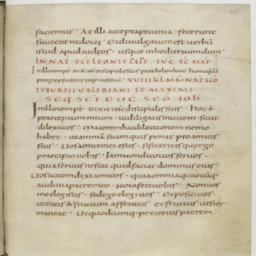 faciemus · At illi accepta pecunia · fecerunt
sicut erant docti · Et divulgatum est verbum
istud apud iudeos · usque in hodiernum diem
IN NAT SCI LEONIS PAPE SEC
In illo tempore dixit discipulis suis parabolam hanc homo
peregre
TIBURTII VALERIANI ET MAXIMI
SEQ SCI EUG SCD IOH
In illo tempore dixit iesus discipulis suis hoc est
praeceptum meum · ut diligatis invicem sicut
dilexi vos · Maiorem hac dilectionem nemo
habet · ut animam suam quis ponat pro amicis
suis · Vos amici mei estis · si feceritis quae ego
praecipio vobis · Iam non dico vos servos ·
quia servus nescit quid faciat dominus eius
Vos autem dixi amicos · quia omnia quaecumque
audivi a patre meo · nota feci vobis · Non vos
me elegistis · sed ego elegi vos · Et posui vos
ut eatis & fructum afferatis · et fructus vester
maneat · Ut quodcumque petieritis patrem